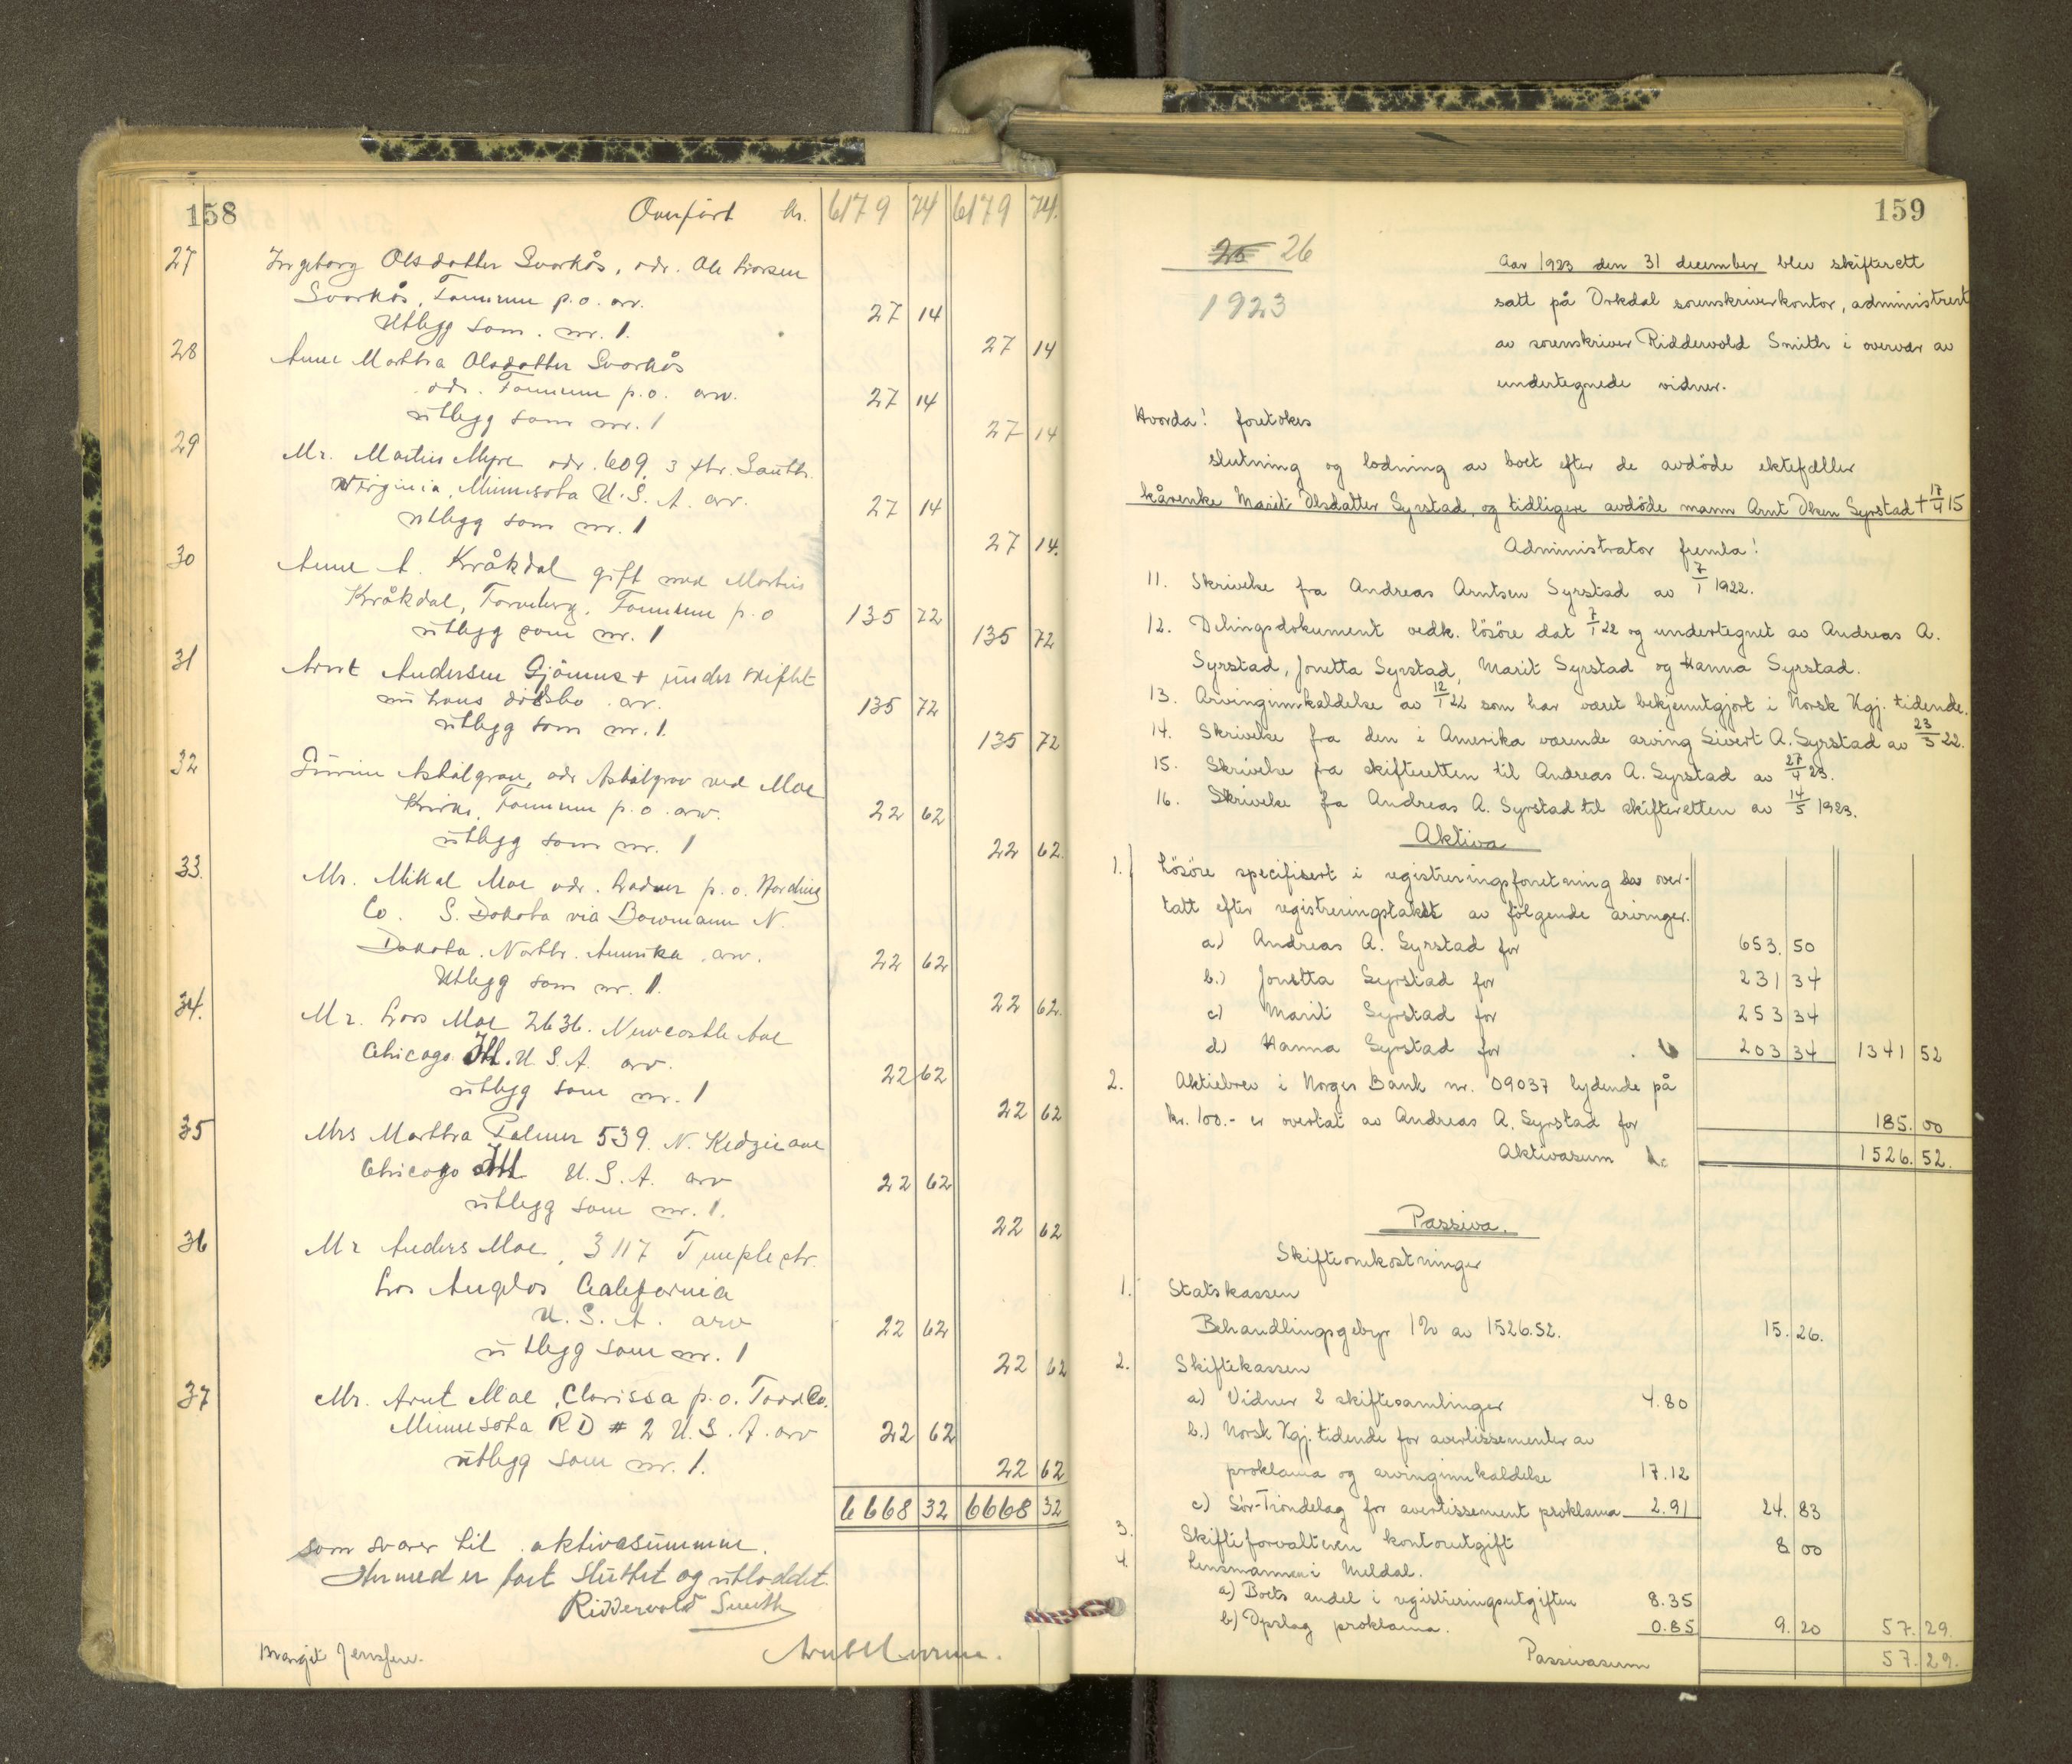 158
Overført kr. 6179 74 6179 74.
27 Ingeborg Olsdatter Svorkås, adr. Ole Larsen
Svorkås, Fannrem p.o. arv. 27 14
Utlegg som nr. 1. 27 14
28 Anne Martha Olsdatter Svorkås
adr. Fannrem p.o. arv. 27 14
utlegg som nr. 1 27 14
29 Mr. Martin Myre adr. 609, 3 str. South.
Virginia, Minnesota U.S.A. arv. 27 14
utlegg som nr. 1 27 14.
30 Anne A. Kråkdal gift med Martin
Kråkdal, Fannrem p.o 135 72
utlegg som nr. 1 135 72
31 Arnt Andersen Gjönnes + under skiftet
nu hans dödsbo arv. 135 72
utlegg som nr. 1. 135 72
32 Gurine Asbølgrav, adr Asbølgrav ved Moe
Kirke, Fannrem p.o. arv. 22 62
utlegg som nr. 1 22 62.
33. Mr. Mikal Moe adr. Ladner p.o. Harding
Co. S. Dakota via Bowmann N.
Dakota. North. Amerika. arv. 22 62
Utlegg som nr. 1. 22 62.
34. Mr. Lars Moe 2636. Newcastle Ave
Chicago Ill. U.S.A. arv. 22 62
utlegg som nr. 1 22 62
35 Mrs Martha Palmer 539. N. Kedzie ave
Chicago Ill U.S.A. arv 22 62
utlegg som nr. 1. 22 62
36 Mr Anders Moe, 3117 Temple str.
Los Angelos California
U.S.A. arv 22 62
utlegg som nr. 1 22 62
37 Mr. Arnt Moe, Clarissa p.o. Todd Co.
Minnesota RD # 2 U.S.A. arv 22 62
utlegg som nr. 1. 22 62
6668 32 6668 32
som svarer til aktivasummen.
Hermed er boet sluttet og utloddet.
Riddervold Smith
Margit Jenssen.
159
25 26
1923
Aar 1923 den 31 december blev skifterett
satt på Orkdal sorenskriverkontor, administrert
av sorenskriver Riddervold Smith i overvær av
undertegnede vidner.
Hvorda! foretokes
slutning og lodning av boet efter de avdöde ektefæller
kårenke Marit Olsdatter Syrstad, og tidligere avdöde mann Arnt Olsen Syrstad + 17/4 15
Administrator fremla!
11. Skrivelse fra Andreas Arntsen Syrstad av 7/1 1922.
12. Delingsdokument vedk. lösöre dat 7/1 22 og undertegnet av Andreas A.
Syrstad, Jonetta Syrstad, Marit Syrstad og Hanna Syrstad.
13. Arvinginnkaldelse av 12/1 22 som har været bekjentgjort i Norsk Kgj. tidende.
14. Skrivelse fra den i Amerika værende arving Sivert A. Syrstad av 23/3 22.
15. Skrivelse fra skifteretten til Andreas A. Syrstad av 27/4 23.
16. Skrivelse fra Andreas A. Syrstad til skifteretten av 14/5 1923.
Aktiva
1. Lösöre specifisert i registreringsforretning over-
tatt efter registreringstakst av fölgende arvinger.
a) Andreas A. Syrstad for 653. 50
b.) Jonetta Syrstad for 231 34
c) Marit Syrstad for 253 34
d) Hanna Syrstad for 203 34 1341 52
2. Aktiebrev i Norges Bank nr. 09037 lydende på
kr. 100.- er overtat av Andreas A. Syrstad for 185. 00
Aktivasum kr 1526. 52.
Passiva.
Skifteomkostninger
1. Statskassen
Behandlingsgebyr 1% av 1526.52. 15. 26.
2. Skiftekassen
a) Vidner 2 skiftesamlinger 4.80
b.) Norsk Kgj. tidende for avertissementer av
proklama og arvinginnkaldelse 17.12
c) Sör-Tröndelag for avertissement proklama 2.91 24. 83
3. Skifteforvalteren kontorutgift 8 00
4. Lensmannen i Meldal.
a) Boets andel i registreringsutgiften 8.35
b) Opslag proklama. 0.85 9. 20 57. 29.
Passivasum 57. 29.